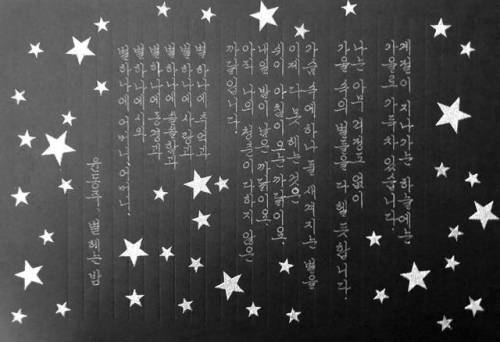 계절이 지나가는 하늘에는
가을로 가득 차 있습니다.
나는 아무 걱정도 없이
가을 속의 별들을 다 헬 듯합니다.
가슴 속에 하나 둘 새겨지는 별을
이제 다 못 헤는 것은
쉬이 아침이 오는 까닭이요,
내일 밤이 남은 까닭이요,
아직 나의 청춘이 다하지 않은
까닭입니다.
별 하나에 추억과
별 하나에 사랑과
별 하나에 쓸쓸함과
별 하나에 동경과
별 하나에 시와
별 하나에 어머니, 어머니.
윤동주 별 헤는 밤